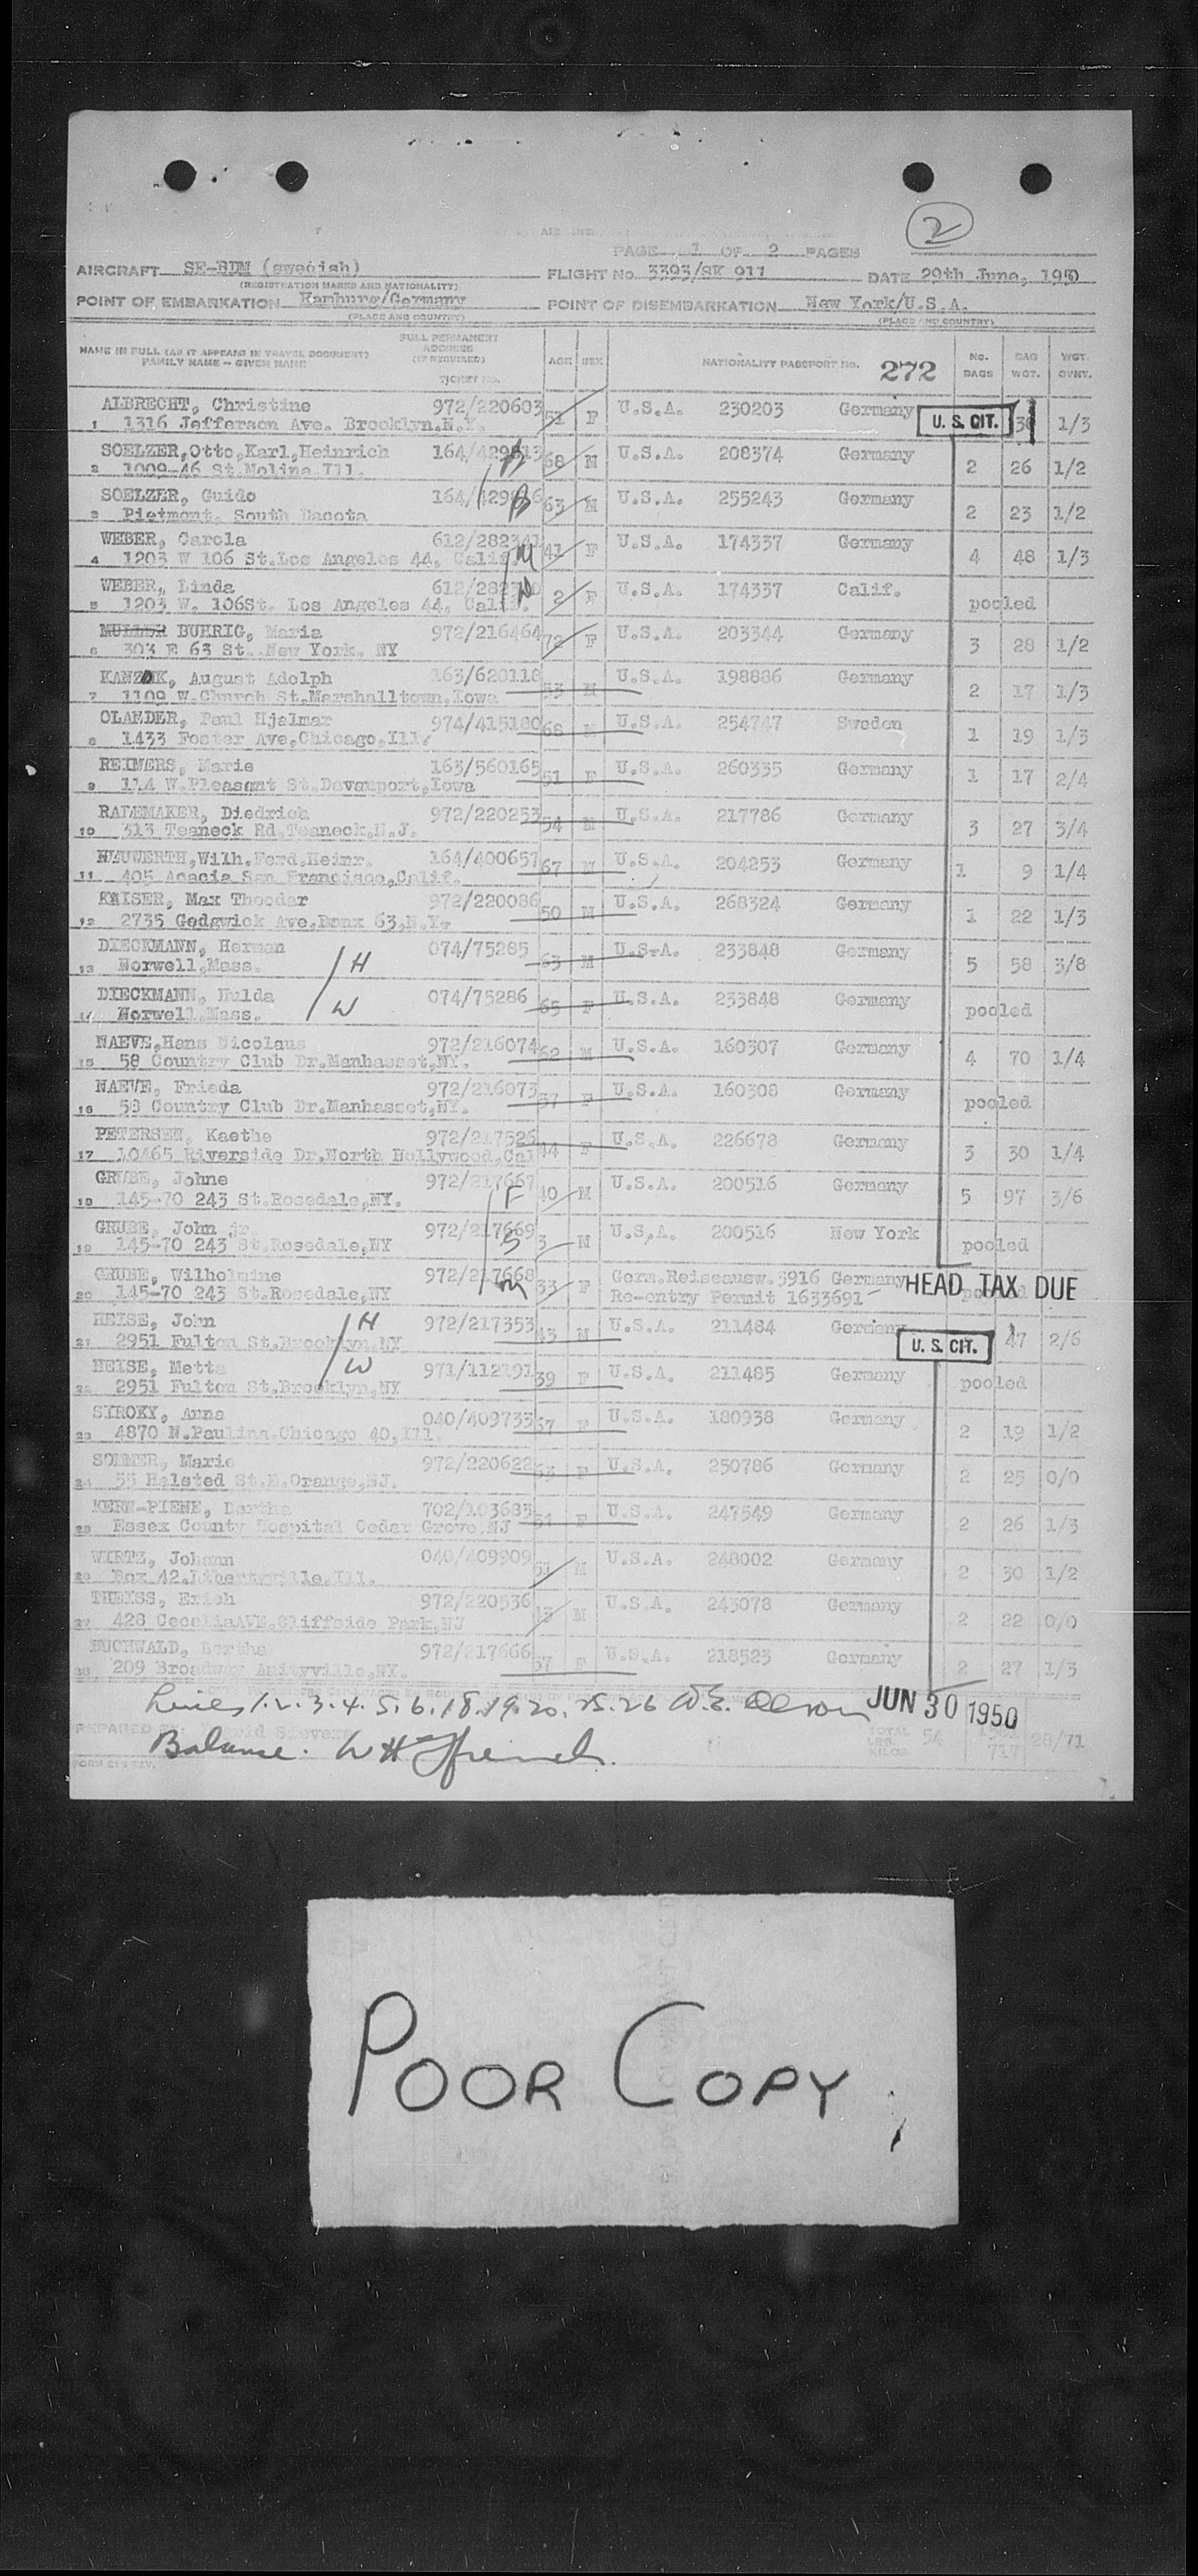 2
PAGE 1 OF 2 PAGES
AIRCRAFT SE-BDM (swedish) FLIGHT No. 3393/SK 911 DATE 29th June, 1950
(REGISTRATION MARKS AND NATIONALITY)
POINT OF EMBARKATION Hamburg/Germany POINT OF DISEMBARKATION New York/U.S.A.
(PLACE AND COUNTRY) (PLACE AND COUNTRY)
NAME IN FULL (AS IT APPEARS IN TRAVEL DOCUMENT) FAMILY NAME – GIVEN NAME FULL PERMANENT ADDRESS (IF REQUIRED) TICKET No. AGE SEX NATIONALITY PASSPORT No. 272 No. BAGS BAG WGT. WGT. OVNT.
ALBRECHT, Christine 972/220603 51 F U.S.A. 230203 Germany U. S. CIT. 1/3
1 1316 Jefferson Ave. Brooklyn.N.Y.
SOELZER,Otto,Karl,Heinrich 164/429813 68 M U.S.A. 208374 Germany 2 26 1/2
2 1009-46 St.Moline.Ill.
SOELZER, Guido 164/429816 63 M U.S.A. 255243 Germany 2 23 1/2
3 Pietmont, South Dacota
WEBER, Carola 612/282341 41 F U.S.A. 174337 Germany 4 48 1/3
4 1203 W 106 St.Los Angeles 44, Calif.
WEBER, Linda 2 F U.S.A. 174337 Calif. pooled
5 1203 W. 106St. Los Angeles 44, Calif.
MULLER BUHRIG, Maria 972/216464 72 F U.S.A. 203344 Germany 3 28 1/2
6 303 E 63 St. New York. NY
August Adolph 163/620118 53 M U.S.A. 198886 Germany 2 17 1/3
7 1109 W.Church St.Marshalltown.Iowa
OLANDER, Paul Hjalmar 974/415180 68 M U.S.A. 254747 Sweden 1 19 1/3
8 1433 Foster Ave,Chicago,Ill.
REIMERS, Marie 163/560165 51 F U.S.A. 260335 Germany 1 17 2/4
9 114 W.Pleasant St.Davenport,Iowa
RADEMAKER, Diedrich 972/220253 54 M U.S.A. 217786 Germany 3 27 3/4
10 313 Teaneck Rd,Teaneck,N.J.
NEUWERTH,Wilh.Ferd.Heinr. 164/400657 67 M U.S.A. 204253 Germany 1 9 1/4
11 405 Acacia San Francisco,Calif.
KAISER, Max Theodar 972/220086 50 M U.S.A. 268324 Germany 1 22 1/3
12 2735 Gedgwick Ave.Bonx 63,N.Y.
DIECKMANN, Herman H 074/75285 63 M U.S.A. 233848 Germany 5 58 3/8
13 Norwell,Mass.
DIECKMANN, Hulda W 074/75286 65 F U.S.A. 233848 Germany pooled
14 Norwell.Mass.
NAEVE,Hans Nicolaus 972/216074 62 M U.S.A. 160307 Germany 4 70 1/4
15 58 Country Club Dr.Manhasset,NY.
NAEVE, Frieda 972/216073 57 F U.S.A. 160308 Germany pooled
16 58 Country Club Dr.Manhasset,NY.
PETERSEN, Kaethe 972/217526 44 F U.S.A. 226678 Germany 3 30 1/4
17 10465 Riverside Dr.North Hollywood,Cal
GRUBE, Johne 972/217667 F 40 M U.S.A. 200516 Germany 5 97 3/6
18 145-70 243 St.Rosedale,NY.
GRUBE, John jr. 972/217669 S 3 M U.S.A. 200516 New York pooled
19 145-70 243 St.Rosedale,NY
GRUBE, Wilhelmine 972/217668 m 33 F Germ.Reiseausw.3916 Germany HEAD TAX DUE
20 145-70 243 St.Rosedale,NY Re-entry Permit 1633691
HEISE, John H 972/217353 43 M U.S.A. 211484 Germany U. S. CIT. 47 2/6
21 2951 Fulton St.Brooklyn.NY
HEISE, Metta W 971/112191 39 F U.S.A. 211485 Germany pooled
22 2951 Fulton St.Brooklyn,NY
SIROKY, Anna 040/409733 67 F U.S.A. 180938 Germany 2 19 1/2
23 4870 N.Paulina.Chicago 40,Ill.
SOMMER, Marie 972/220622 63 F U.S.A. 250786 Germany 2 25 0/0
24 55 Halsted St.E.Orange,NJ.
KERN-PIENE, Bertha 702/103683 51 F U.S.A. 247549 Germany 2 26 1/3
25 Essex County Hospital Cedar Grove.NJ
WIRTZ, Johann 040/409909 51 M U.S.A. 248002 Germany 2 30 1/2
26 Box 42.Libertyville.Ill.
THEISS, Erich 972/220536 43 M U.S.A. 243078 Germany 2 22 0/0
27 428 CeceliaAVE.Cliffside Park,NJ
BUCHWALD, Bertha 972/217666 57 F U.S.A. 218523 Germany 2 27 1/3
28 209 Broadway Amityville,NY.
Lines 1. 2. 3. 4. 5. 6. 18. 19. 20. 25. 26 W.E. Olson JUN 30 1950
PREPARED BY: TOTAL LBS. KILOS 54 717 28/71
Balance. W H French
POOR COPY